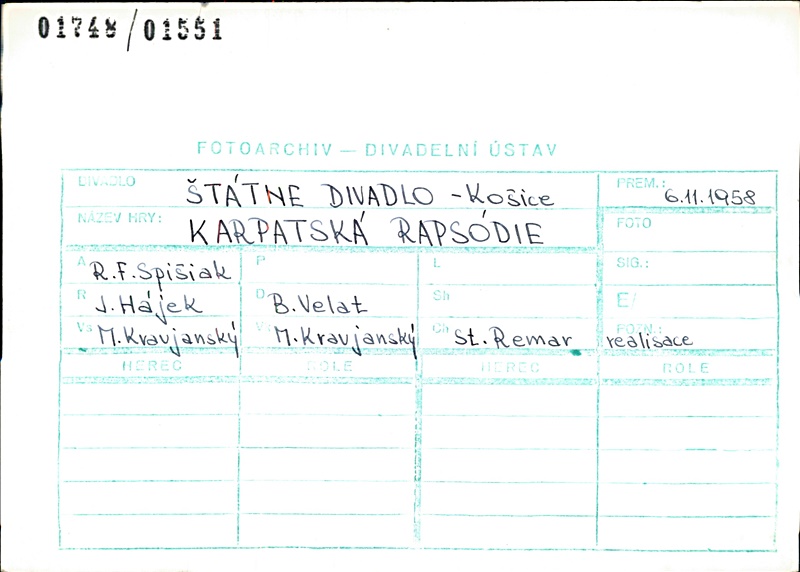 01748/01551
FOTOARCHIV — DIVADELNÍ ÚSTAV
DIVADLO ŠTÁTNE DIVADLO - Košice PREM.: 6.11.1958
NÁZEV HRY: KARPATSKÁ RAPSÓDIE FOTO
A R.F.Spišiak P L SIG.:
R J.Hájek D B.Velat Sh E/
Vs M.Kravjanský M.Kravjanský Ch St.Remar POZN.: realisace
HEREC ROLE HEREC ROLE